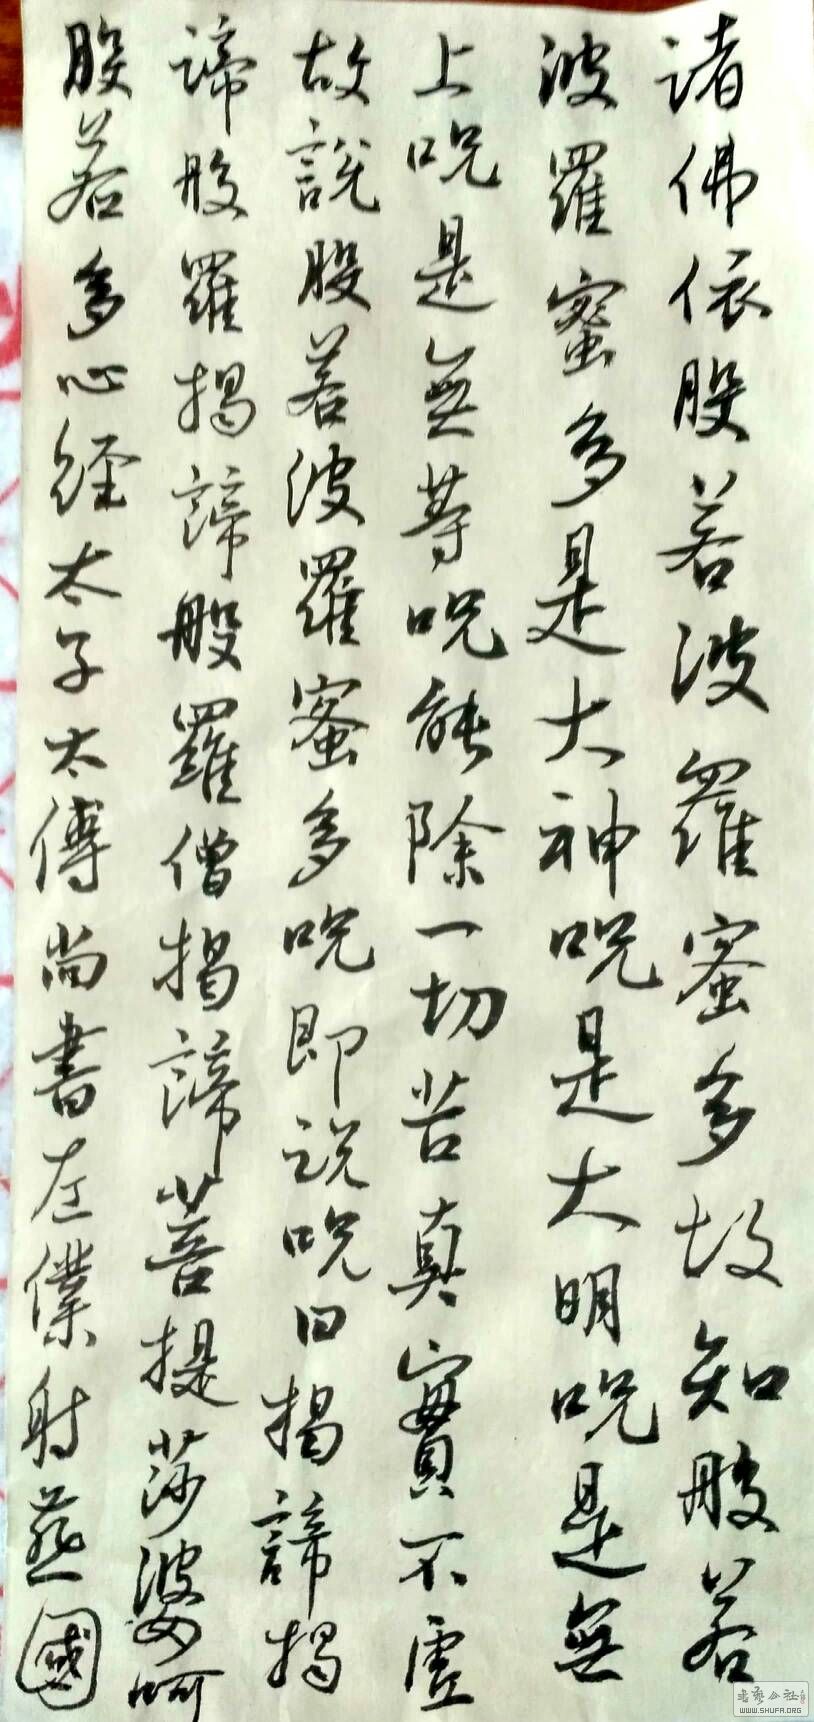 諸佛依般若波羅蜜多故知般若
波羅蜜多是大神咒是大明咒是無
上咒是無等咒能除一切苦真實不虛
故說般若波羅蜜多咒即说咒曰揭諦揭
諦般羅揭諦般羅僧揭諦菩提莎婆呵
般若多心經太子太傅尚書左僕射燕國
書藝公社
WWW.SHUFA.ORG